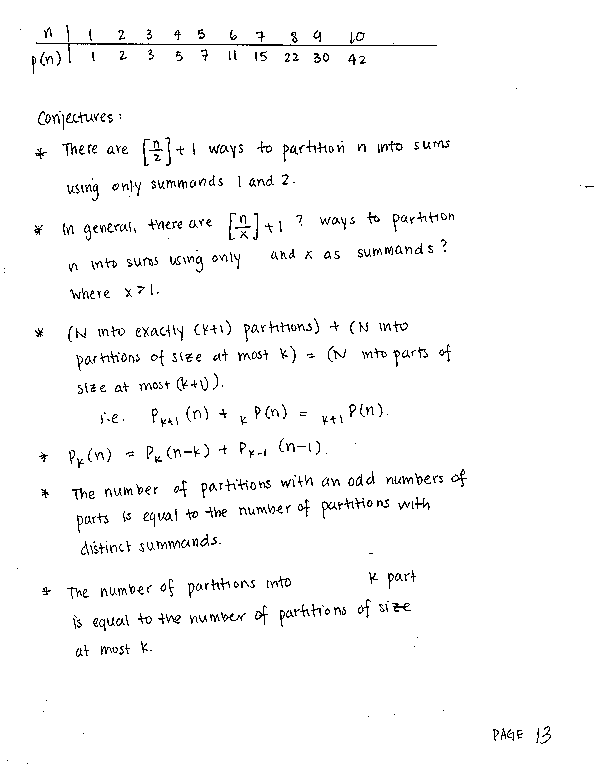 n | 1 2 3 4 5 6 7 8 9 10
p(n) | 1 2 3 5 7 11 15 22 30 42
Conjectures:
* There are [n/2] + 1 ways to partition n into sums
using only summands 1 and 2.
* In general, there are [n/x] + 1 ? ways to partition
n into sums using only and x as summands?
where x > 1.
* (N into exactly (k+1) partitions) + (N into
partitions of size at most k) = (N into parts of
size at most (k+1)).
i.e. P_{k+1}(n) + _kP(n) = _{k+1}P(n).
* P_k(n) = P_k(n-k) + P_{k-1}(n-1).
* The number of partitions with an odd numbers of
parts is equal to the number of partitions with
distinct summands.
* The number of partitions into k part
is equal to the number of partitions of size
at most k.
PAGE 13